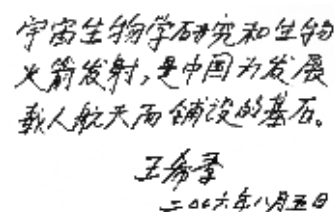 宇宙生物学研究和生物
火箭发射,是中国为发展
载人航天而铺设的基石。
王希季
二〇〇六年八月五日